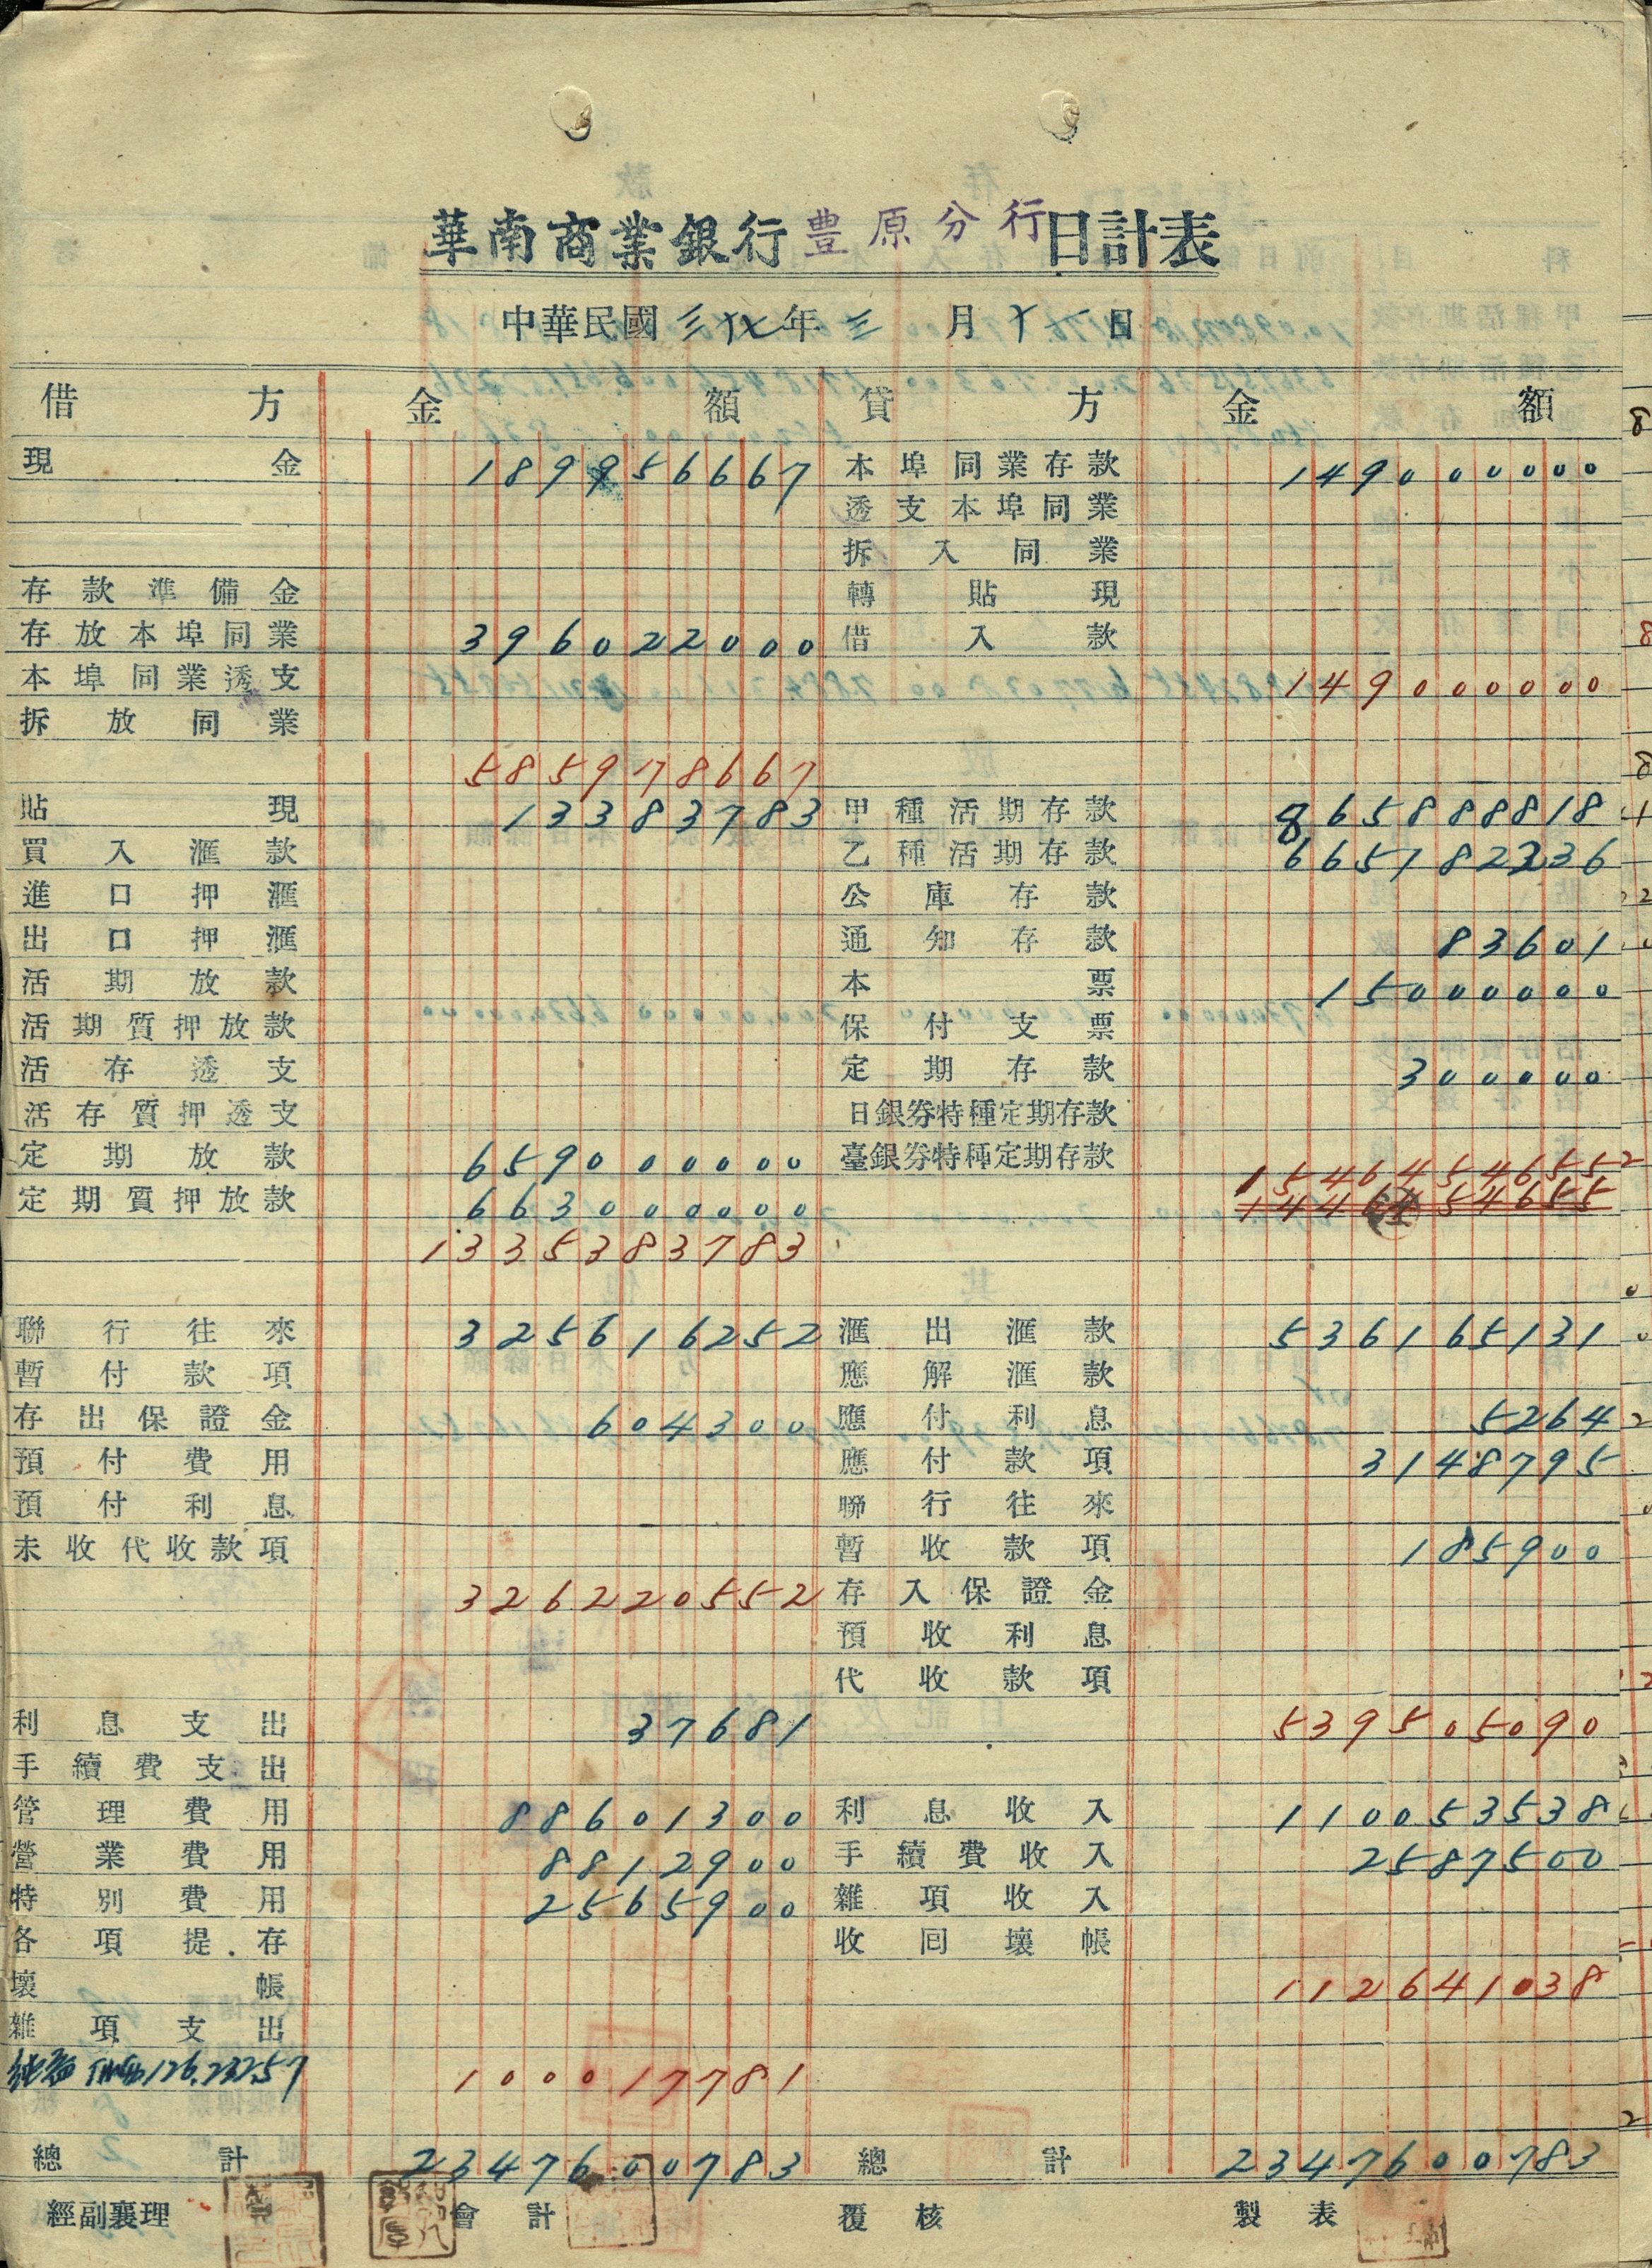 華南商業銀行豊原分行日計表
中華民國三十七年三月十一日
借方 金額 貸方 金額
現金 189956667 本埠同業存款 149000000
透支本埠同業
拆入同業
存款準備金 轉貼現
存放本埠同業 396022000 借入款
本埠同業透支 149000000
拆放同業
585978667
貼現 13383783 甲種活期存款 865888818
買入滙款 乙種活期存款 665182236
進口押滙 公庫存款
出口押滙 通知存款 83601
活期放款 本票 15000000
活期質押放款 保付支票
活存透支 定期存款 300000
活存質押透支 日銀券特種定期存款
定期放款 659000000 臺銀券特種定期存款 1546454655
定期質押放款 663000000 1446454655
1335383783
聯行往來 325616252 滙出滙款 536165131
暫付款項 應解滙款
存出保證金 604300 應付利息 5264
預付費用 應付款項 3148795
預付利息 聯行往來
未收代收款項 暫收款項 185900
326220552 存入保證金
預收利息
代收款項
利息支出 37681 539505090
手續費支出
管理費用 88601300 利息收入 110053538
營業費用 8812900 手續費收入 2587500
特別費用 2565900 雜項收入
各項提存 收回壞帳
壞帳 112641038
雜項支出
純益 126,232.57 100017781
總計 2347600783 總計 2347600783
經副襄理 會計 覆核 製表